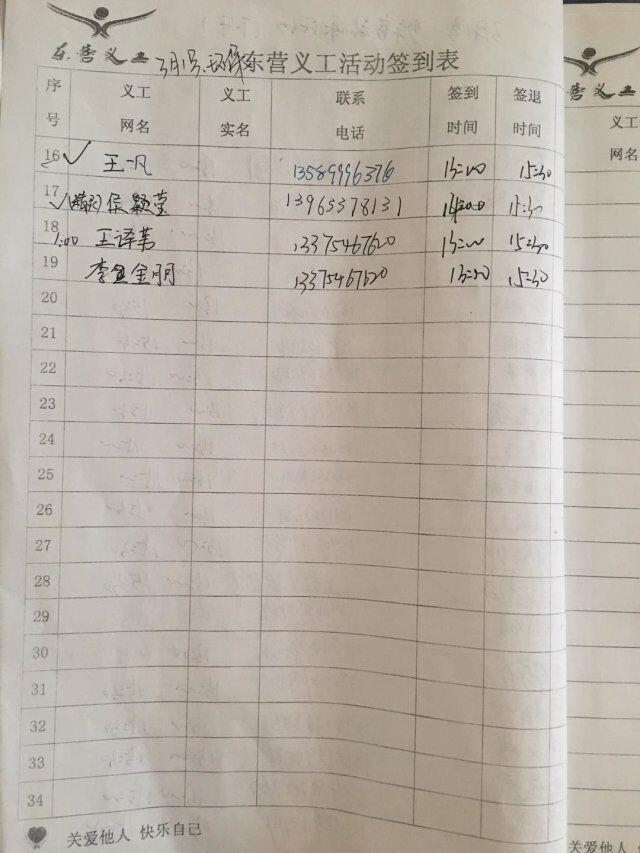 东营义工 3月1号 环保 东营义工活动签到表
序号 义工网名 义工实名 联系电话 签到时间 签退时间
16 王一凡 13589996376 13:00 15:30
17 侯颖莹 13963378131 15:30
18 1:00 13375467620 13:00 15:30
19 13375467620 13:00 15:30
20
21
22
23
24
25
26
27
28
29
30
31
32
33
34
关爱他人 快乐自己
东营义工
义工网名
关爱他人 快